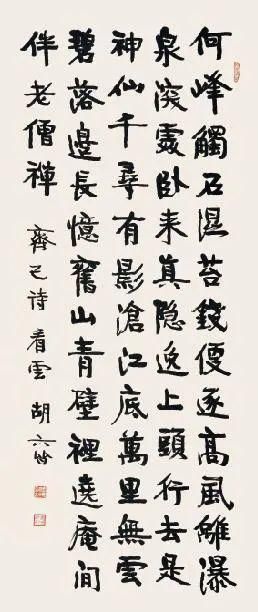 何峰觸石湿苔錢便逐高風離瀑
泉深處卧来真隐逸上頭行去是
神仙千尋有影滄江底萬里無雲
碧落邊長憶舊山青壁裡遶庵间
伴老僧禅
齊己诗看雲 胡六皆